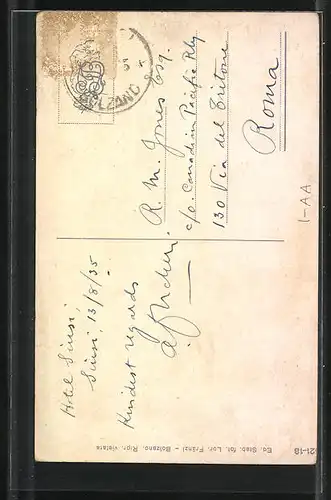 Hotel Siusi,
Siusi, 13/8/35
Kindest regards
BOLZANO
R. M. Jones Esq.
c/o. Canadian Pacific Rly
130 Via del Tritone
Roma
1-AA
21-18
Ed. Stab. fot. Lor. Fränzl - Bolzano. Ripr. vietata